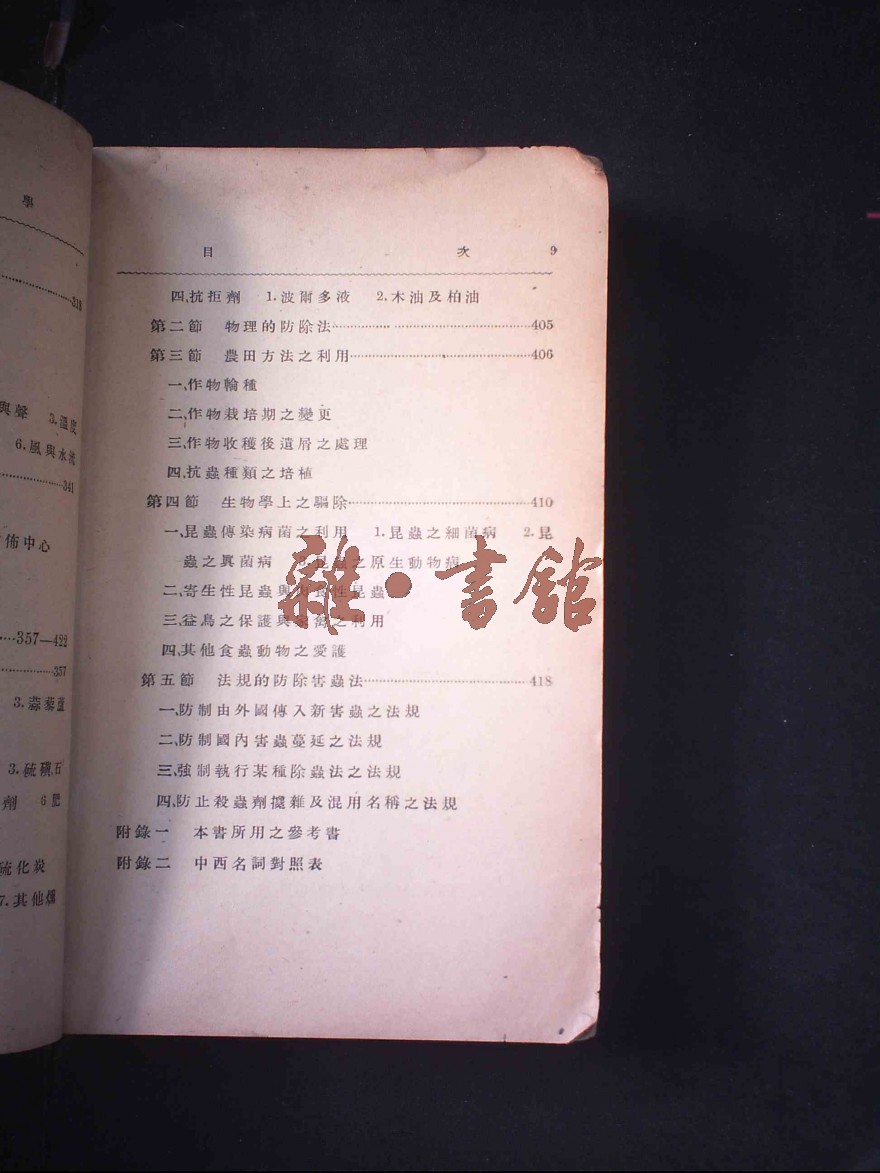 學
318
與聲 3.溫度
6.風與水流
341
佈中心
357—422
357
3.蒜藜蘆
3.硫磺石
劑 6肥
硫化炭
7.其他燻
目 次 9
四、抗拒劑 1.波爾多液 2.木油及柏油
第二節 物理的防除法 405
第三節 農田方法之利用 406
一、作物輪種
二、作物栽培期之變更
三、作物收穫後遺屑之處理
四、抗蟲種類之培植
第四節 生物學上之驅除 410
一、昆蟲傳染病菌之利用 1.昆蟲之細菌病 2.昆
蟲之眞菌病 3.昆蟲之原生動物病
二、寄生性昆蟲與捕食性昆蟲
三、益鳥之保護與家禽之利用
四、其他食蟲動物之愛護
第五節 法規的防除害蟲法 418
一、防制由外國傳入新害蟲之法規
二、防制國內害蟲蔓延之法規
三、強制執行某種除蟲法之法規
四、防止殺蟲劑攙雜及混用名稱之法規
附錄一 本書所用之參考書
附錄二 中西名詞對照表
雜·書館